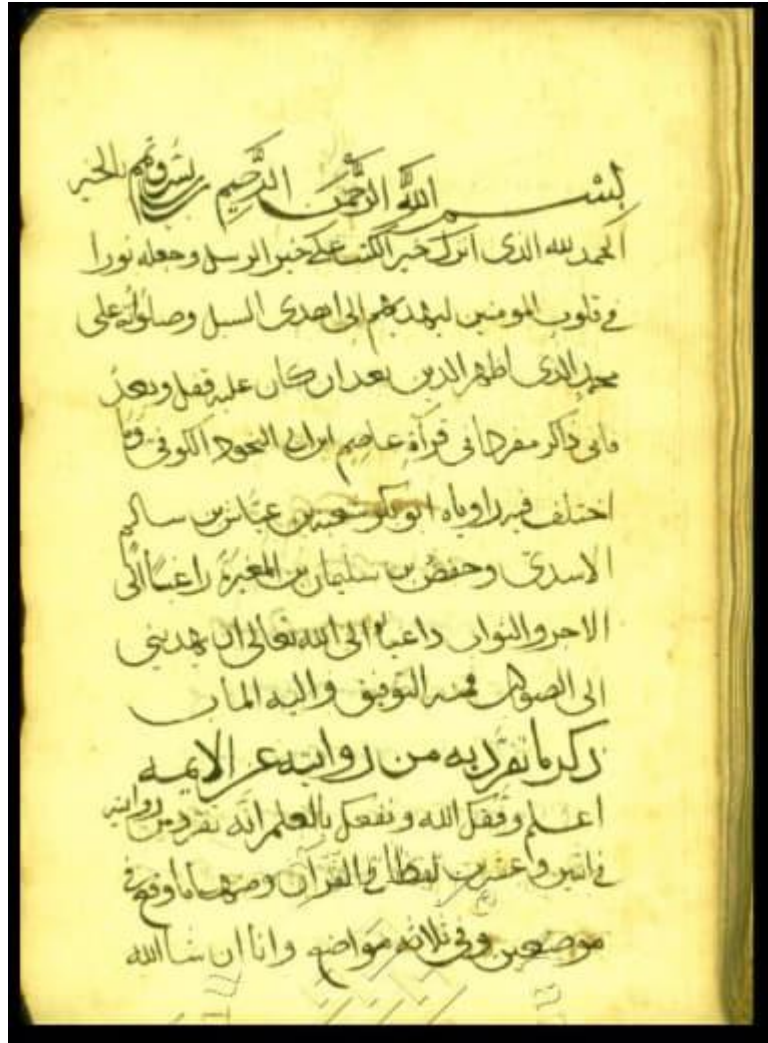 بسم الله الرحمن الرحيم رب يسر وتمم بالخير
الحمد لله الذي انزل خير الكتب على خير الرسل وجعله نورا
في قلوب المومنين ليهديهم الى اهدى السبل وصلواته على
محمد الذي اظهر الدين بعد ان كان عليه قفل وبعد
فاني ذاكر مفرداتى قرآة عاصم ابن ابى النجود الكوفي وما
اختلف فيه راوياه ابو بكر شعبة بن عياش بن سالم
الاسدى وحفص بن سليمان بن المغيرة راغبا الى
الاجر والثواب داعيا الى الله تعالى ان يهديني
الى الصواب فمنه التوفيق واليه الماب
ذكر ما تفرد به من روايتيه عن الايمة
اعلم وفقك الله ونفعك بالعلم انه تفرد من روايتيه
في اثنين وعشرين لفظا في القرآن ومنها ما وقع في
موضعين وفي ثلاثة مواضع وانا ان شا الله